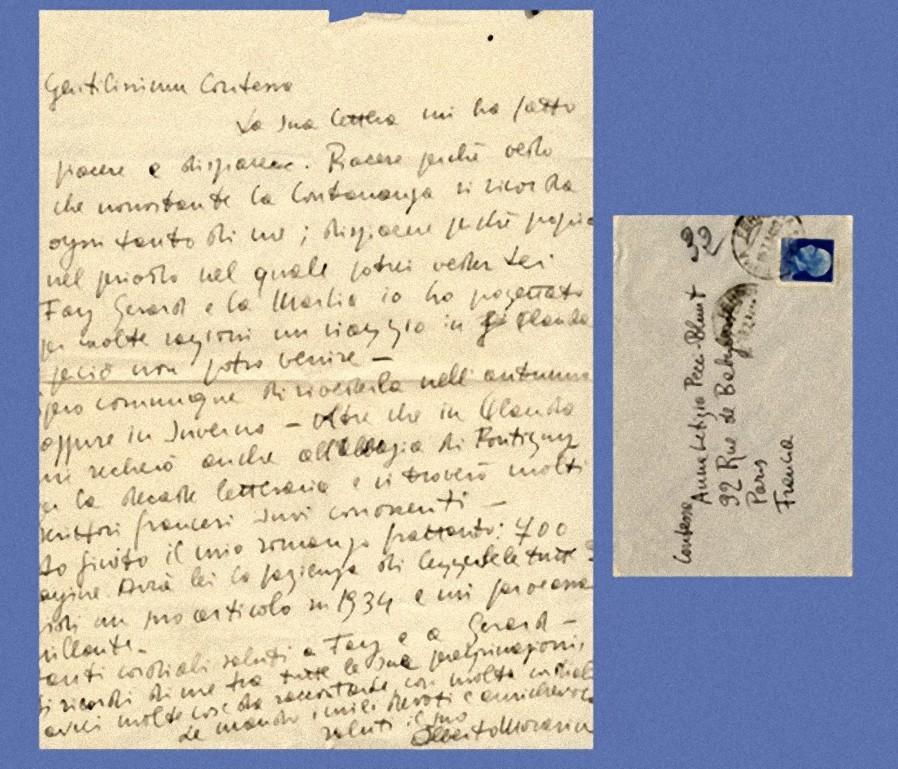 Gentilissima Contessa
La sua lettera mi ha fatto
piacere e dispiacere. Piacere perchè vedo
che nonostante la lontananza si ricorda
ogni tanto di me; dispiacere perchè proprio
nel periodo nel quale potrei veder Lei
Fay Gerard e la Marlia io ho progettato
per molte ragioni un viaggio in Olanda
perciò non potrò venire —
spero comunque di rivederla nell'autunno
oppure in Inverno — oltre che in Olanda
mi recherò anche all'Abbazia di Pontigny
per la decade letteraria e vi troverò molti
scrittori francesi suoi conoscenti —
Ho finito il mio romanzo frattanto: 700
pagine Avrà lei la pazienza di leggerle tutte?
vidi un suo articolo su 1934 e mi parve assai
brillante.
Tanti cordiali saluti a Fay e a Gerard —
Si ricordi di me tra tutte le sue peregrinazioni,
avrei molte cose da raccontarle con molta cordialità
Le mando i miei devoti e amichevoli
saluti il suo
Alberto Moravia
32
Contessa
Anna Letizia Pecci-Blunt
92 Rue de Babylone
Paris
Francia